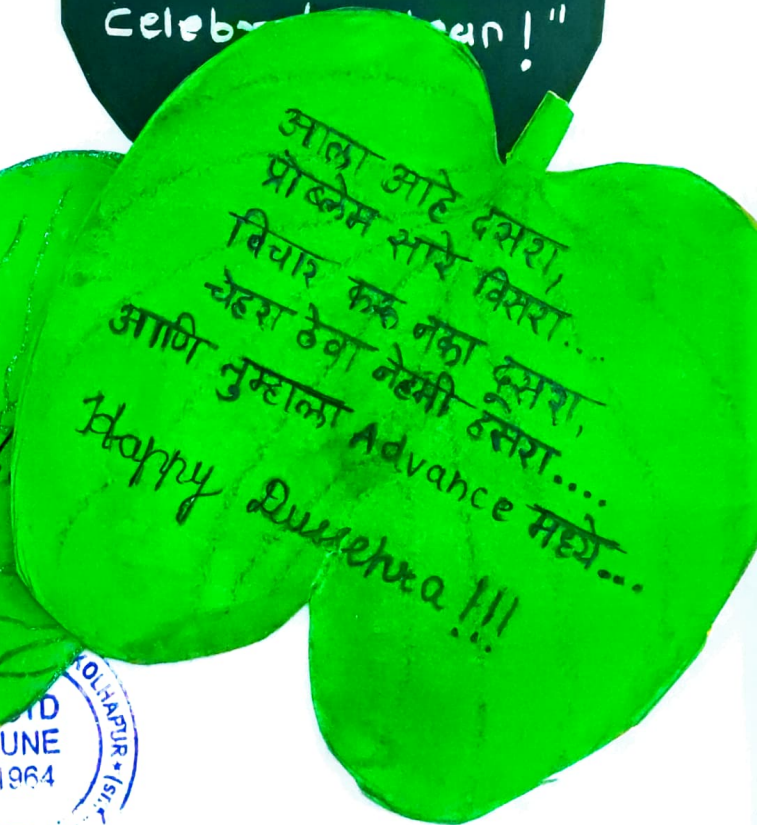 celeb an!"
आला आहे दसरा,
प्रॉब्लेम सारे विसरा....
विचार करू नका दूसरा,
चेहरा ठेवा नेहमी हसरा....
आणि तुम्हाला Advance मध्ये...
Happy Dussehra !!!
KOLHAPUR ★ (St.
TD
UNE
1964